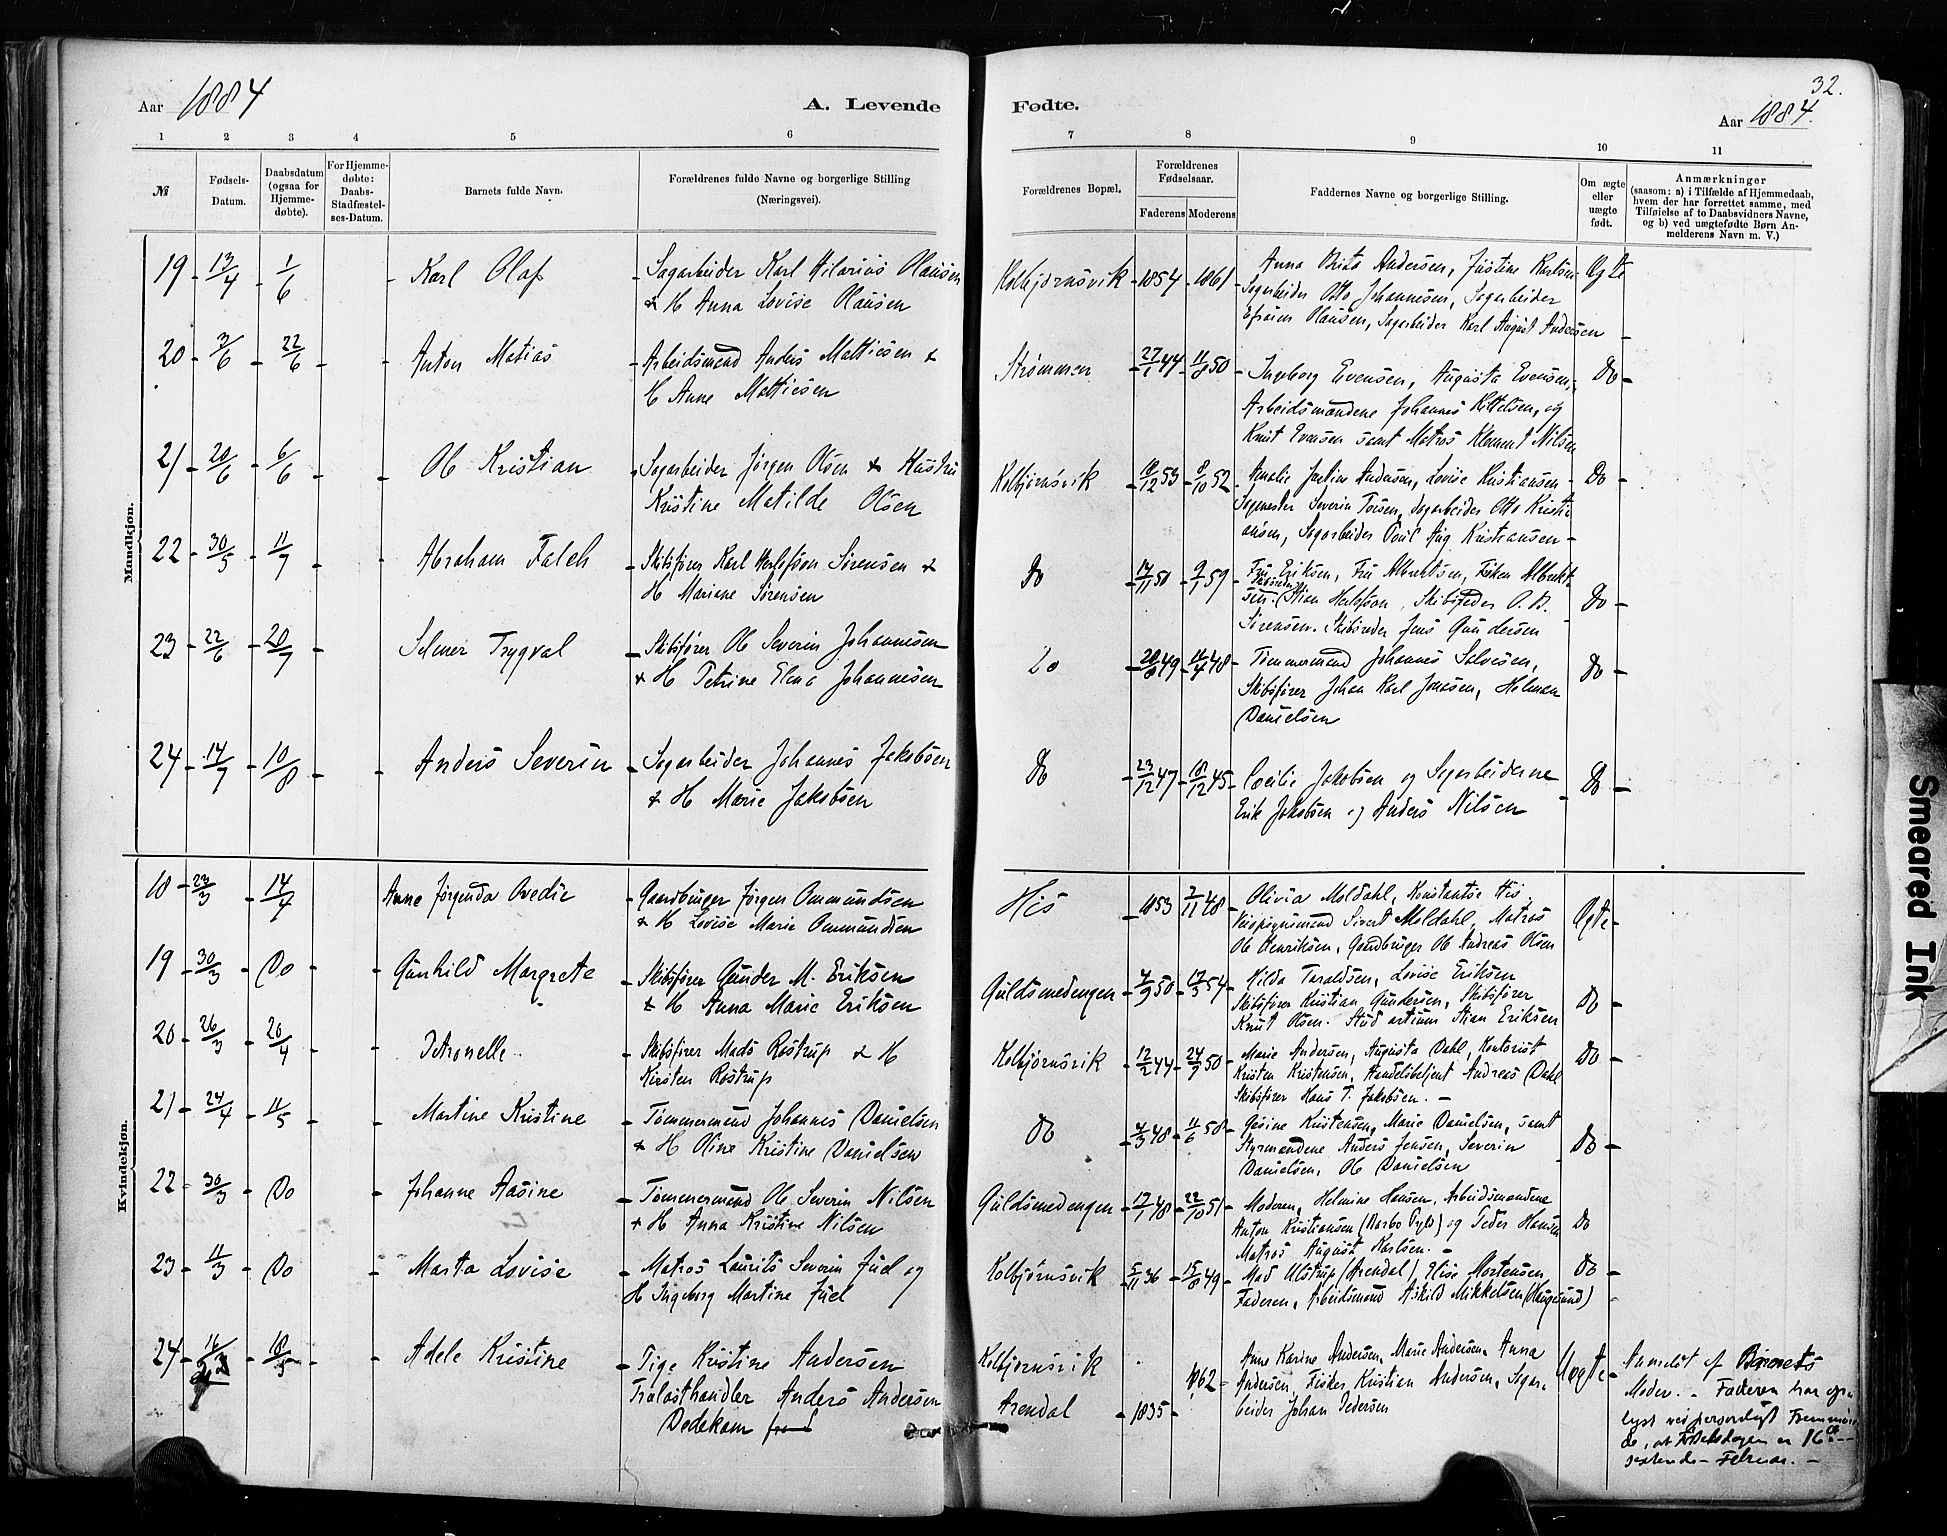 32.
Aar 1884 A. Levende Fødte. Aar 1884.
1 2 3 4 5 6 7 8 9 10 11
№
Fødsels-Datum.
Daabsdatum (ogsaa for Hjemmedøbte).
For Hjemmedøbte: Daabs-Stadfæstelses-Datum.
Barnets fulde Navn.
Forældrenes fulde Navne og borgerlige Stilling (Næringsvei).
Forældrenes Bopæl.
Forældrenes Fødselsaar.
Faderens Moderens
Faddernes Navne og borgerlige Stilling.
Om ægte eller uægte født.
Anmærkninger
(saasom: a) i Tilfælde af Hjemmedaab, hvem der har forrettet samme, med Tilføielse af to Daabsvidners Navne, og b) ved uægtefødte Børn Anmelderens Navn m. V.)
Mandkjøn.
19 13/4 1/6 Karl Olaf Sagarbeider Karl Hilarius Olausen Kolbjørnsvik 1854 1861 Anna Brita Andersen, Justine Karlsen Ægte
& H Anna Lovise Olausen Sagarbeider Otto Johannesen, Sagarbeider
Efraim Olausen, Sagarbeider Karl August Andersen
20 3/6 22/6 Anton Matias Arbeidsmand Anders Mattiesen & Strømmen 27/1 44 11/8 50 Ingeborg Evensen, Augusta Evensen, Do
H Anne Mattiesen Arbeidsmændene Johannes Kittelsen, og
Knut Evensen samt Matros Klement Nilsen
21 20/6 6/6 Ole Kristian Sagarbeider Jørgen Olsen & Hustru Kolbjørnsvik 18/12 53 8/10 52 Amalie Justine Andersen, Lovise Kristiansen Do
Kristine Matilde Olsen Sagmester Severin Toisen, Sagarbeider Otto Kristiansen, Sagarbeider Poul Aug Kristiansen
22 30/5 11/7 Abraham Falch Skibsfører Karl Herlofson Sørensen & Do 14/11 50 9/1 59 Fru Eriksen, Fru Albretsen, Frøken Albrektsen. Stian Herlofson, Skibsreder O. B. Do
H Mariane Sørensen Sørensen. Skibsreder Jens Gundersen
23 22/6 20/7 Selmer Trygval Skibsfører Ole Severin Johannesen Do 20/8 49 11/4 48 Tømmermand Johannes Salvesen, Do
& H Petrine Elena Johannesen Skibsfører Johan Karl Jonasen, Helman
Danielsen
24 14/7 10/8 Anders Severin Sagarbeider Johannes Jakobsen Do 23/12 47 18/12 45 Cecilie Jakobsen og Sagarbeiderne Do
& H Marie Jakobsen Erik Jakobsen og Anders Nilsen
Kvindekjøn.
18 23/3 14/4 Anne Jørgenda Ovedie Gaardbruger Jørgen Ommundsen His 1853 2/11 48 Olivia Moldahl, Konstantse His, Ægte
& H Lovise Marie Ommundsen Sivert Moldahl, Matros
Ole Henriksen, Gaardbruger Ole Andreas Olsen
19 30/3 Do Gunhild Margrete Skibsfører Gunder M. Eriksen Guldsmedengen 4/9 50 17/3 54 Hilda Taraldsen, Lovise Eriksen Do
& H Anna Marie Eriksen Skibsfører Kristian Gundersen, Skibsfører
Knut Olsen. Stud artium Stian Eriksen
20 26/3 20/4 Petronelle Skibsfører Mads Rostrup & H Kolbjørnsvik 12/2 44 24/9 50 Marie Andersen, Augusta Dahl, Kontorist Do
Kirsten Rostrup Kristen Kristensen, Handelsbetjent Andreas Dahl
Skibsfører Hans T. Jakobsen.
21 24/4 11/5 Martine Kristine Tømmermand Johannes Danielsen Do 4/3 48 11/6 58 Gesine Kristensen, Marie Danielsen, samt Do
& H Oline Kristine Danielsen Styrmændene Anders Jensen, Severin
Danielsen, Ole Danielsen
22 30/3 Do Johanne Aasine Tømmermand Ole Severin Nilsen Guldsmedengen 17/1 48 22/10 51 Moderen, Helmine Hansen. Arbeidsmændene Do
& H Anna Kristine Nilsen Anton Kristiansen (Barbo) og Peder Hansen
Matros August Karlsen.
23 11/3 Do Marta Lovise Matros Laurits Severin Juel og Kolbjørnsvik 5/11 36 15/8 49 Mad Ulstrup (Arendal) Elise Mortensen Do
H Ingeborg Martine Juel Faderen, Arbeidsmand Askild Mikkelsen (Haugesund)
24 16/2 18/5 Adele Kristine Pige Kristine Andersen Kolbjørnsvik 1862 Anne Karine Andersen, Marie Andersen, Anna Uægte Anmeldt af Barnets
Trælasthandler Anders Andersen Arendal 1835 Andersen, Fisker Kristian Andersen, Sagarbeider Johan Pedersen Moder. Faderen har oplyst ved personligt Fremmøde, at Fødselsdagen er 16de
Dedekam sextende Februar.
Smeared Ink